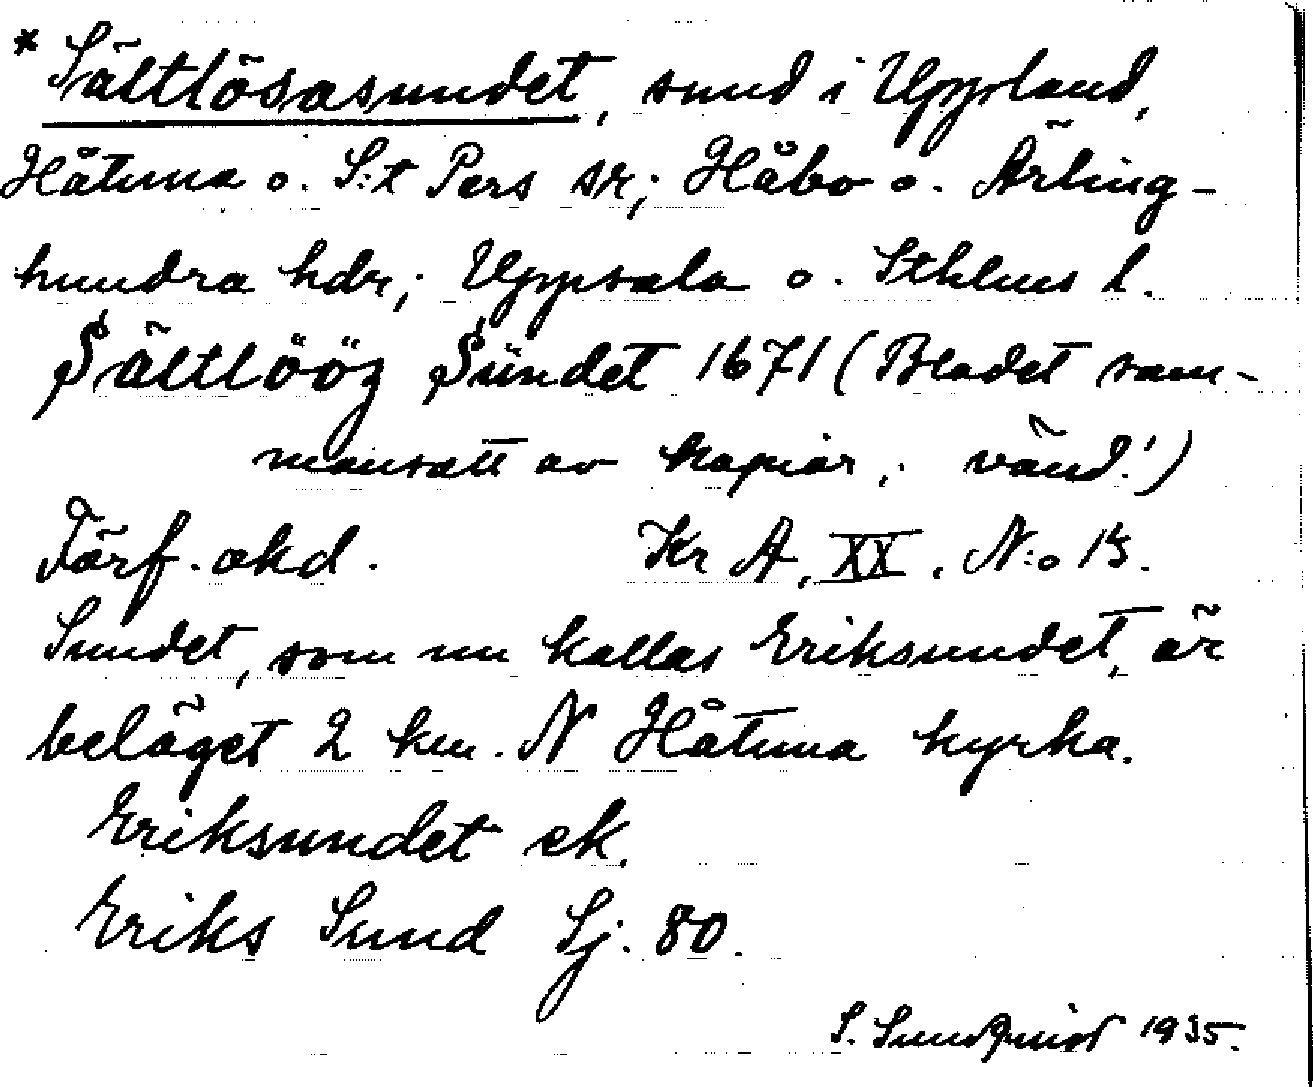 * Sältlösasundet, sund i Uppland,
Håtuna o. S:t Pers sr; Håbo o. Ärling-
hundra hdr; Uppsala o. Sthlms l.
Sältlööz Sündet 1671 (Bladet sam-
mansatt av kopior, vänd!)
Förf. okd. Kr A, XX, N:o 13.
Sundet, som nu kallas Eriksundet, är
beläget 2 km. N Håtuna kyrka.
Eriksundet ek.
Eriks Sund Sj. 80.
S. Sundqvist 1935.